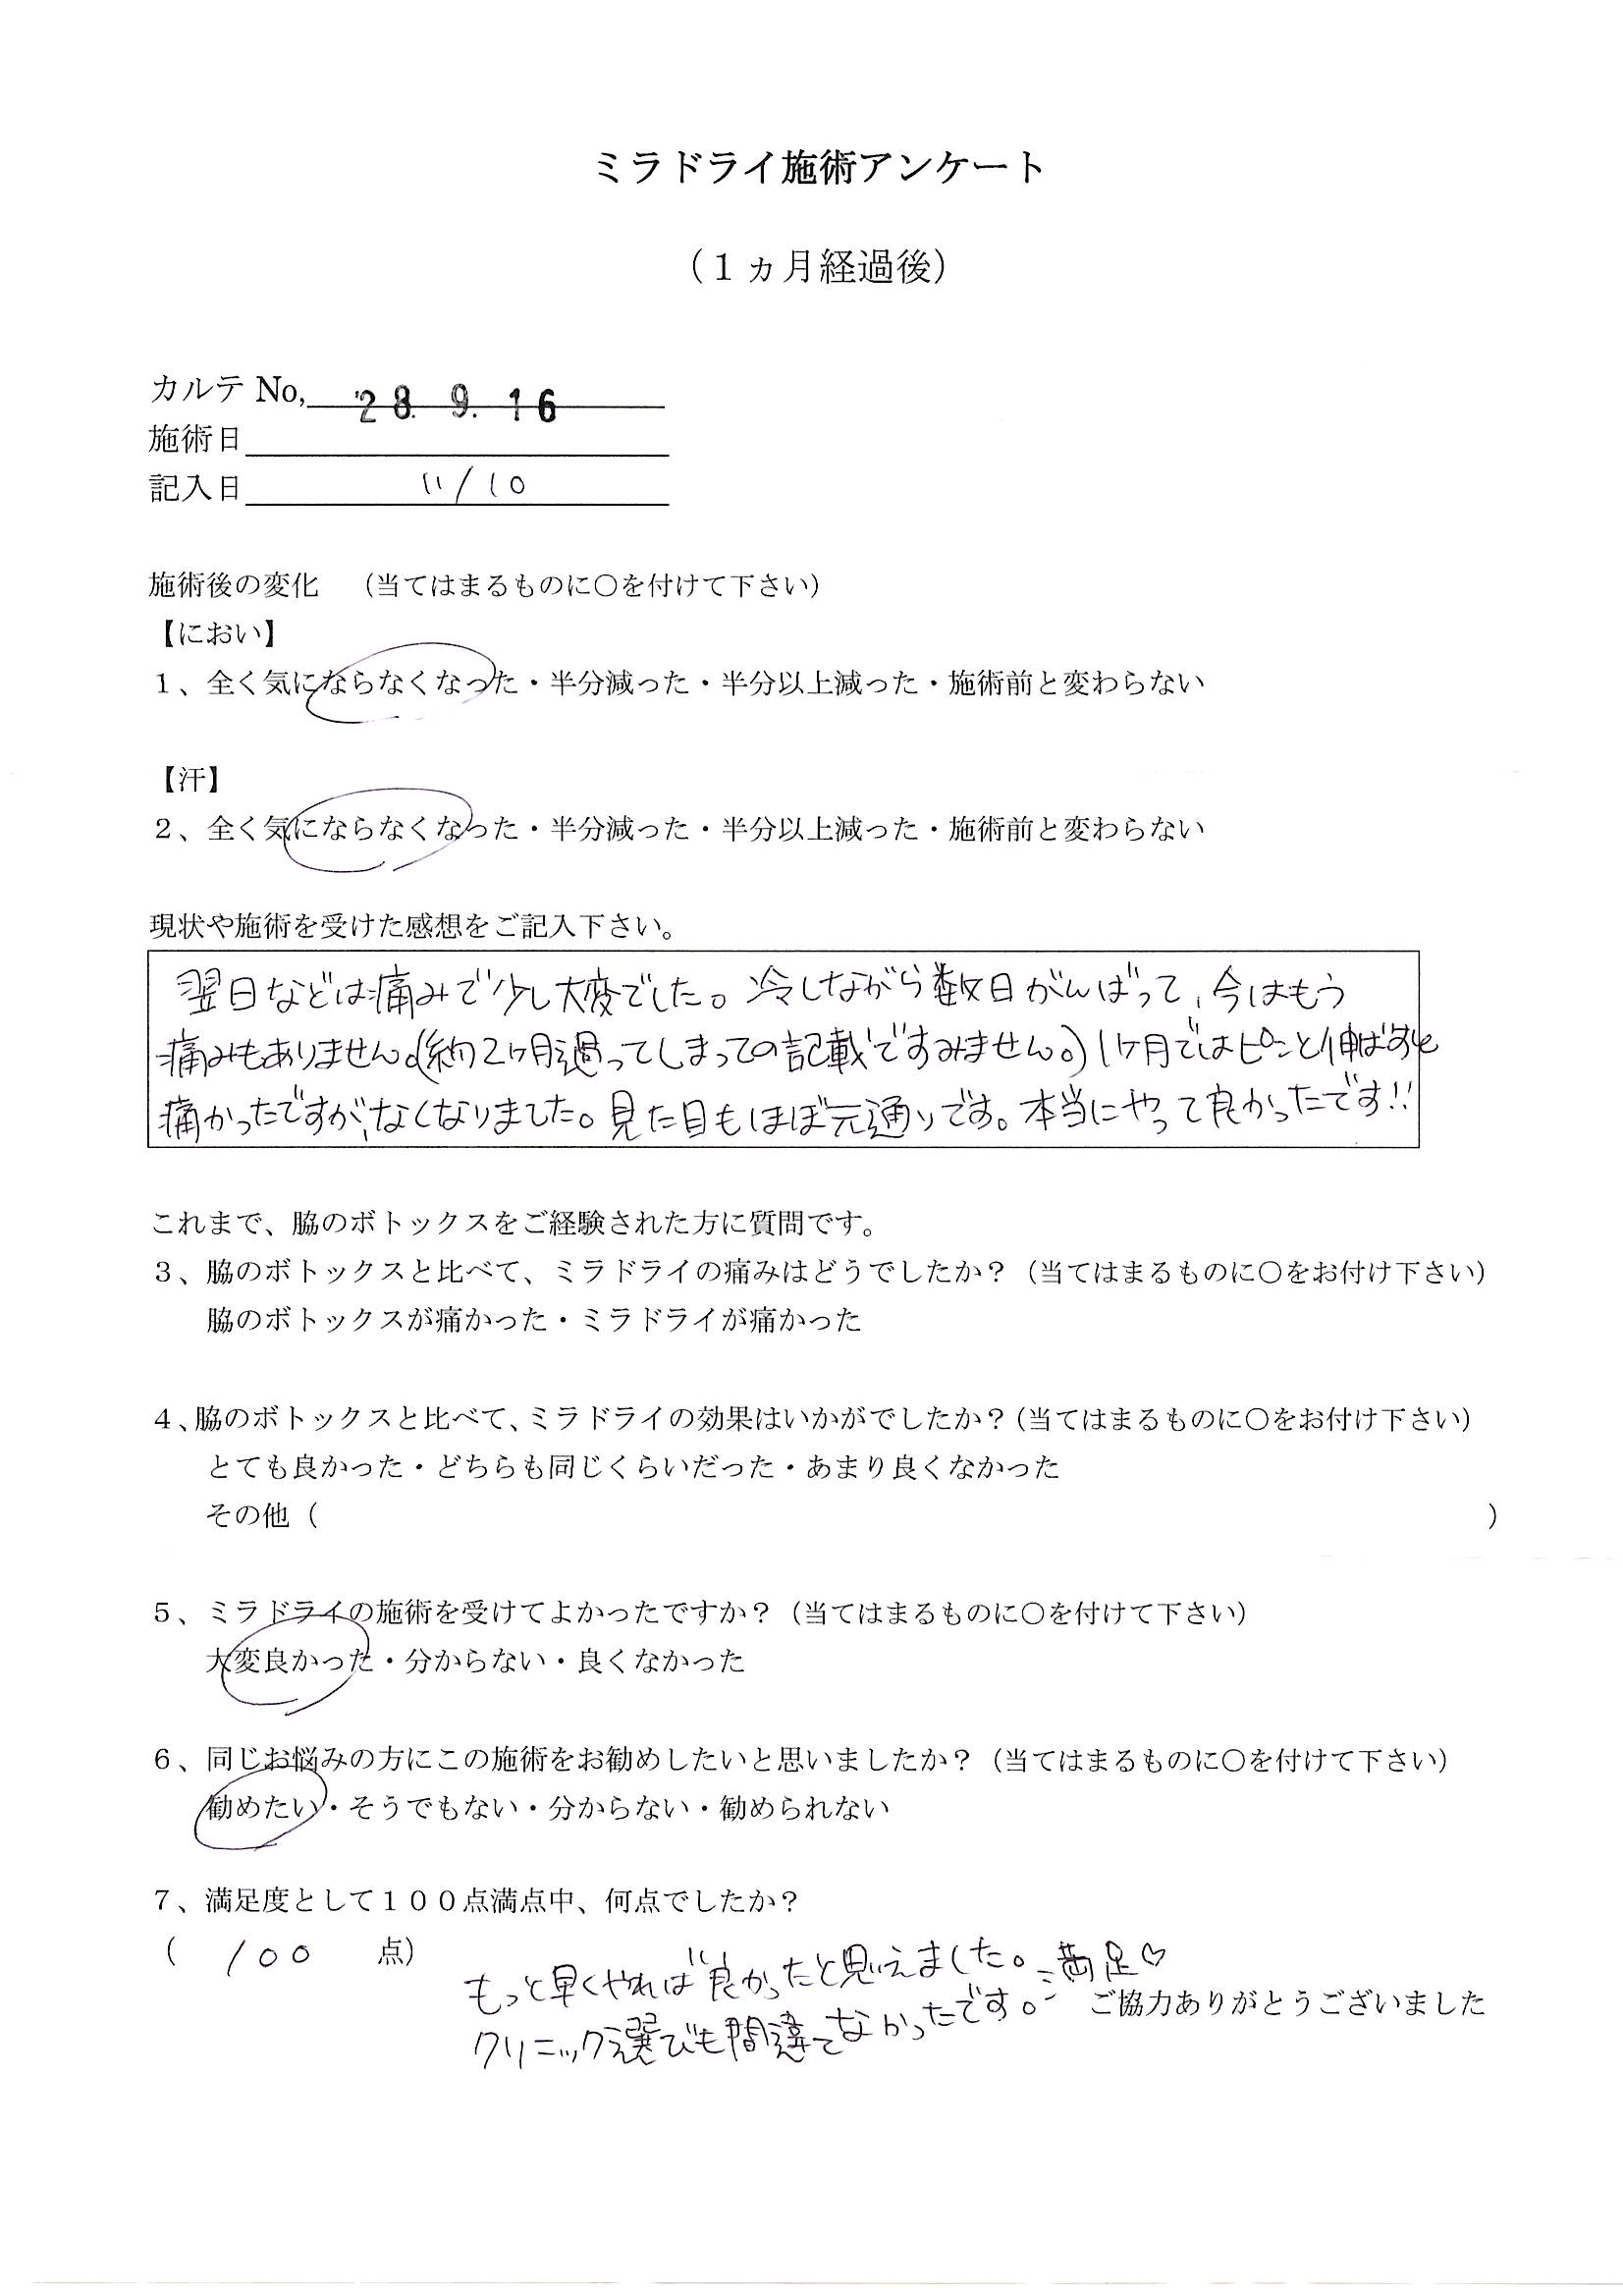 ミラドライ施術アンケート
（１ヵ月経過後）
カルテ No, '28. 9. 16
施術日
記入日 11/10
施術後の変化　（当てはまるものに〇を付けて下さい）
【におい】
１、全く気にならなくなった・半分減った・半分以上減った・施術前と変わらない
【汗】
２、全く気にならなくなった・半分減った・半分以上減った・施術前と変わらない
現状や施術を受けた感想をご記入下さい。
翌日などは痛みで少し大変でした。冷しながら数日がんばって、今はもう
痛みもありません。(約2ヶ月過ってしまっての記載ですみません。) 1ヶ月ではピンと伸ばすと
痛かったですが、なくなりました。見た目もほぼ元通りです。本当にやって良かったです!!
これまで、脇のボトックスをご経験された方に質問です。
３、脇のボトックスと比べて、ミラドライの痛みはどうでしたか？（当てはまるものに〇をお付け下さい）
脇のボトックスが痛かった・ミラドライが痛かった
４、脇のボトックスと比べて、ミラドライの効果はいかがでしたか？（当てはまるものに〇をお付け下さい）
とても良かった・どちらも同じくらいだった・あまり良くなかった
その他（　　　）
５、ミラドライの施術を受けてよかったですか？（当てはまるものに〇を付けて下さい）
大変良かった・分からない・良くなかった
６、同じお悩みの方にこの施術をお勧めしたいと思いましたか？（当てはまるものに〇を付けて下さい）
勧めたい・そうでもない・分からない・勧められない
７、満足度として１００点満点中、何点でしたか？
（　100　点）
もっと早くやれば良かったと思えました。満足♡
クリニック選びも間違ってなかったです。
ご協力ありがとうございました